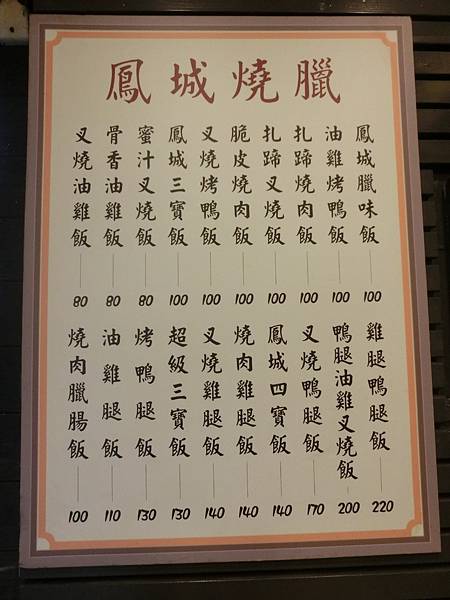 鳳城燒臘
叉燒油雞飯 80
骨香油雞飯 80
蜜汁叉燒飯 80
鳳城三寶飯 100
叉燒烤鴨飯 100
脆皮燒肉飯 100
扎蹄叉燒飯 100
扎蹄燒肉飯 100
油雞烤鴨飯 100
鳳城臘味飯 100
燒肉臘腸飯 100
油雞腿飯 110
烤鴨腿飯 130
超級三寶飯 130
叉燒雞腿飯 140
燒肉雞腿飯 140
鳳城四寶飯 140
叉燒鴨腿飯 170
鴨腿油雞叉燒飯 200
雞腿鴨腿飯 220